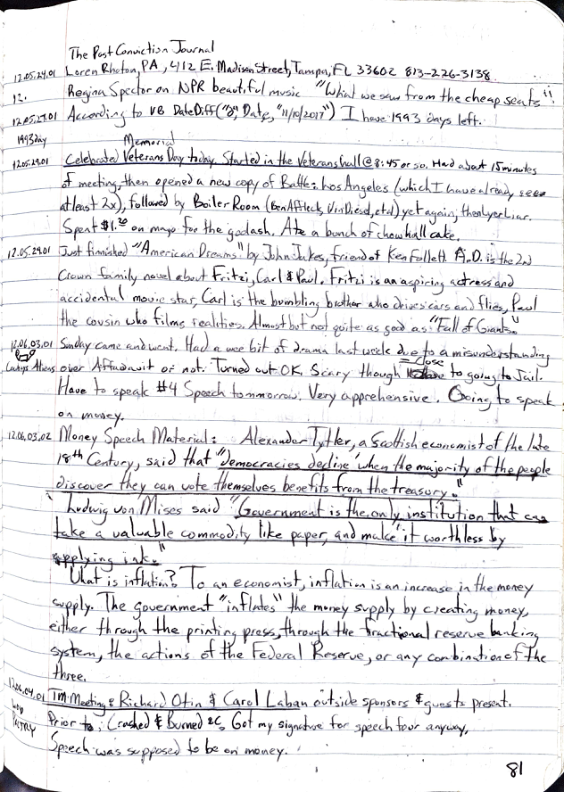 The Post Conviction Journal
12.05.24.01 Loren Rhoton, PA, 412 E. Madison Street, Tampa, FL 33602 813-226-3138
12. Regina Spector on NPR beautiful music "What we saw from the cheap seats"!
12.05.27.01 According to VB DateDiff("D", Date, "11/10/2017") I have 1993 days left.
1993 day
Memorial
12.05.29.01 Celebrated Veterans Day today. Started in the Veterans hall @ 8:45 or so. Had about 15 minutes
of meeting, then opened a new copy of Battle: Los Angeles (which I have already seen
at least 2x), followed by Boiler Room (Ben Affleck, Vin Diesel, etal) yet again,
Spent $1.20 on mayo for the goulash. Ate a bunch of chowhall cake.
12.05.29.01 Just finished "American Dreams" by John Jakes, friend of Ken Follett A.D. is the 2nd
Crown family novel about Fritzi, Carl & Paul. Fritzi is an aspiring actress and
accidental movie star, Carl is the bumbling brother who drives cars and flies, Paul
the cousin who films realities. Almost but not quite as good as "Fall of Giants"
12.06.03.01 Sunday came and went. Had a wee bit of drama last week due to a misunderstanding
over Affidavit or not. Turned out OK. Scary though close to going to Jail.
Have to speak #4 Speech tomorrow. Very apprehensive. Going to speak
on money.
12.06.03.02 Money Speech Material: Alexander Tytler, a Scottish economist of the late
18th Century, said that "democracies decline when the majority of the people
discover they can vote themselves benefits from the treasury."
Ludwig von Mises said "Government is the only institution that can
take a valuable commodity like paper, and make it worthless by
applying ink."
What is inflation? To an economist, inflation is an increase in the money
supply. The government "inflates" the money supply by creating money,
either through the printing press, through the fractional reserve banking
system, the actions of the Federal Reserve, or any combination of the
three.
12.06.04.01 TM Meeting: Richard Otin & Carol Laban outside sponsors & guests present.
Prior to: Crashed & Burned Got my signature for speech four anyway.
Speech was supposed to be on money.
81